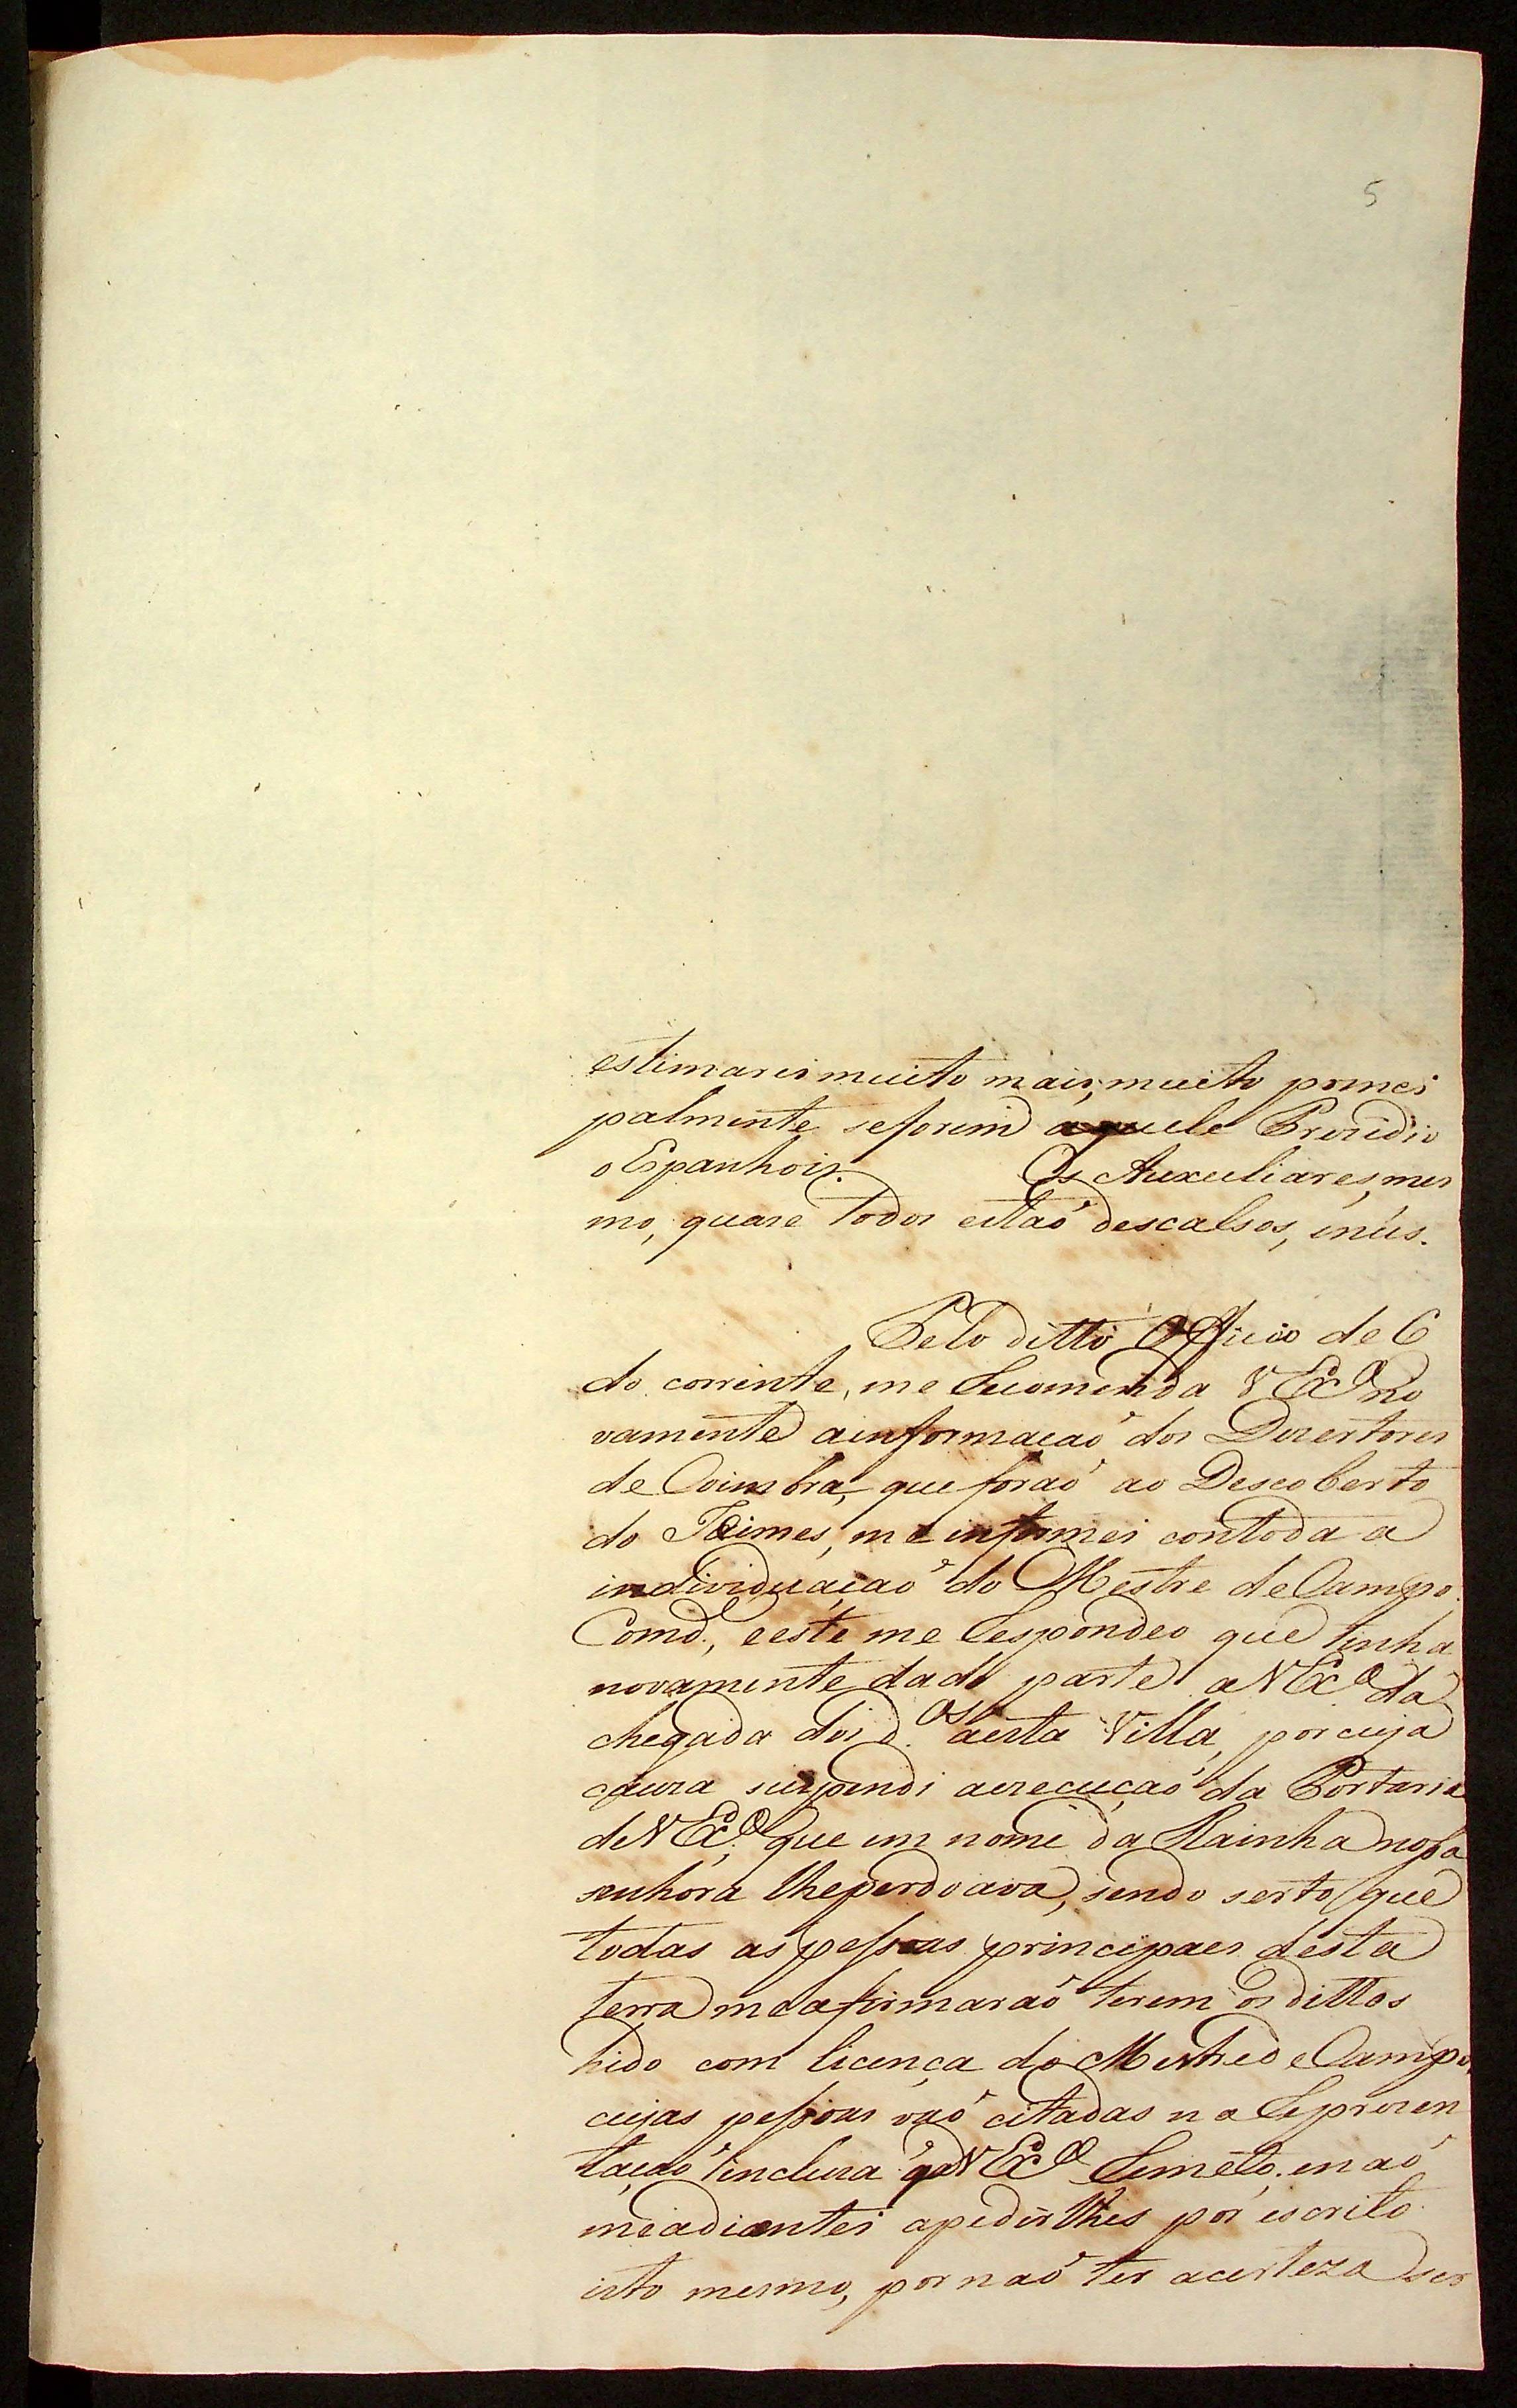 5
estimarei muito mais, muito princi
palmente seforem aquele Prezidio
o Espanhois. Os Auxuliares, mes
mo, quaze todos estaõ descalsos, enús.
Pelo ditto Officio de 6
do corrente, me Recomenda V Ex.ª no
vamente ainformaçaõ dos Dezertores
de Coimbra, que foraõ ao Descoberto
do Jaimes, me informei contoda a
individuaçaõ do Mestre de Campo
Comd.e, eeste me Respondeo que tinha
novamente dado parte a V Ex.ª da
chegada dos d.os aesta Villa, por cuja
cauza suspendi aexecuçaõ da Portaria
de V Ex.ª, que em nome da Rainha nossa
senhora lheperdoava, sendo serto que
todas aspessoas principaes desta
terra meafirmaraõ terem os dittos
hido com licença do Mestre de Campo,
cujas pessoas vaõ citadas na Reprezen
taçaõ incluza q̃ a V Ex.ª Remeto, enaõ
meadiantei apedirlhes por escrito
isto mesmo, por naõ ter acerteza ser